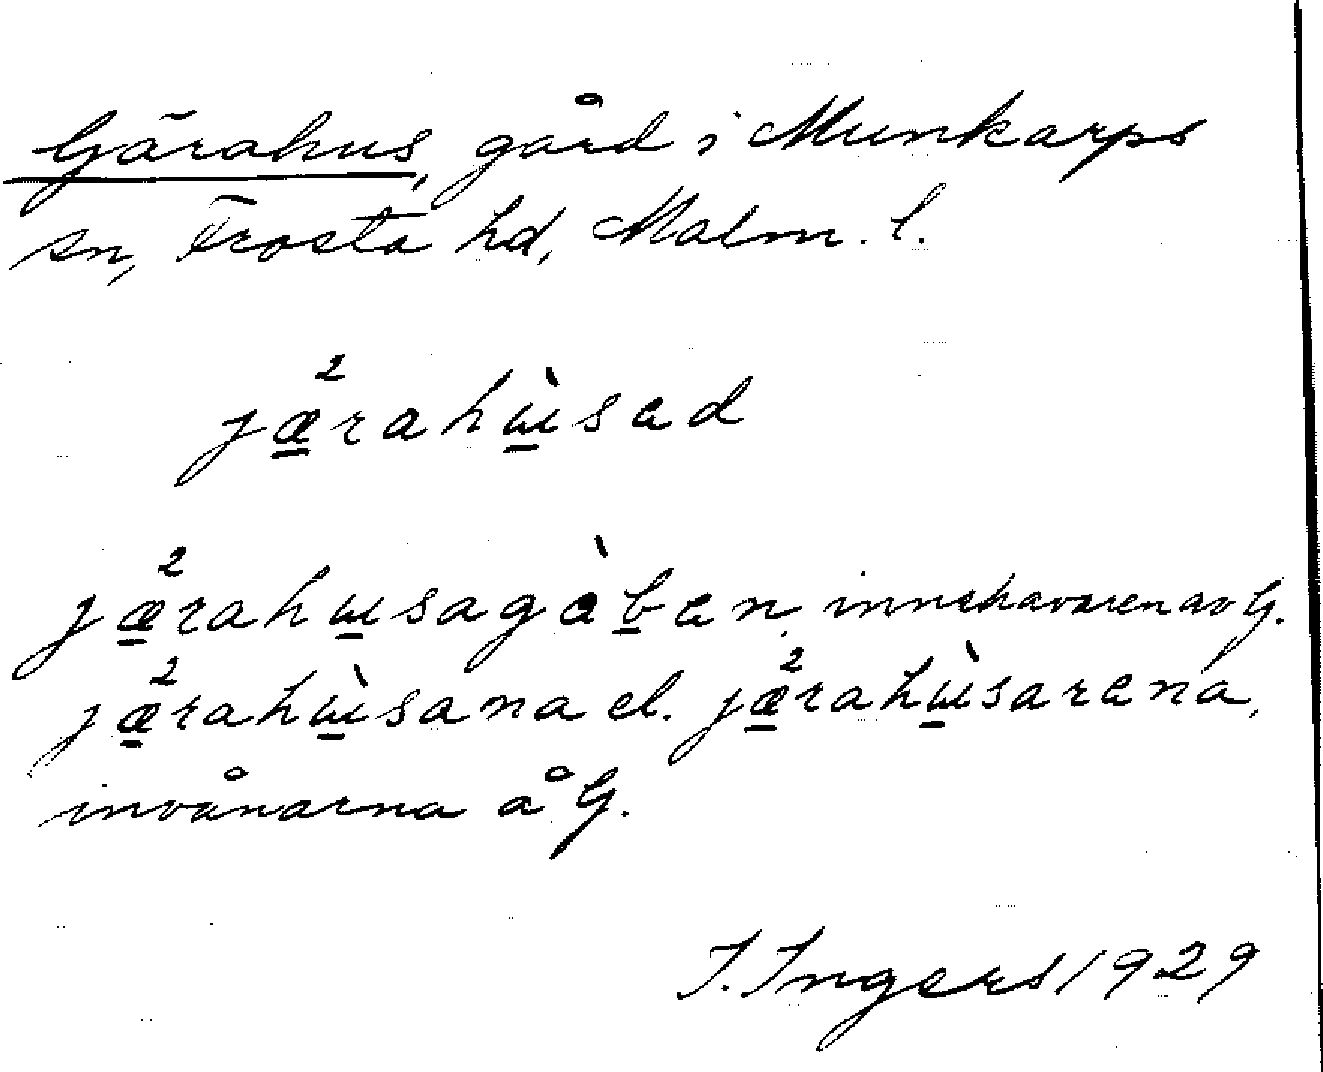 Gärahus, gård i Munkarps
sn, Frosta hd, Malm. l.
jæ̲²rahɯ̲̀sad
jæ̲²rahɯ̲sagàb̲an, innehavaren av G.
jæ̲²rahɯ̲̀sana el. jæ̲²rahɯ̲̀sarena,
invånarna å G.
I. Ingers 1929